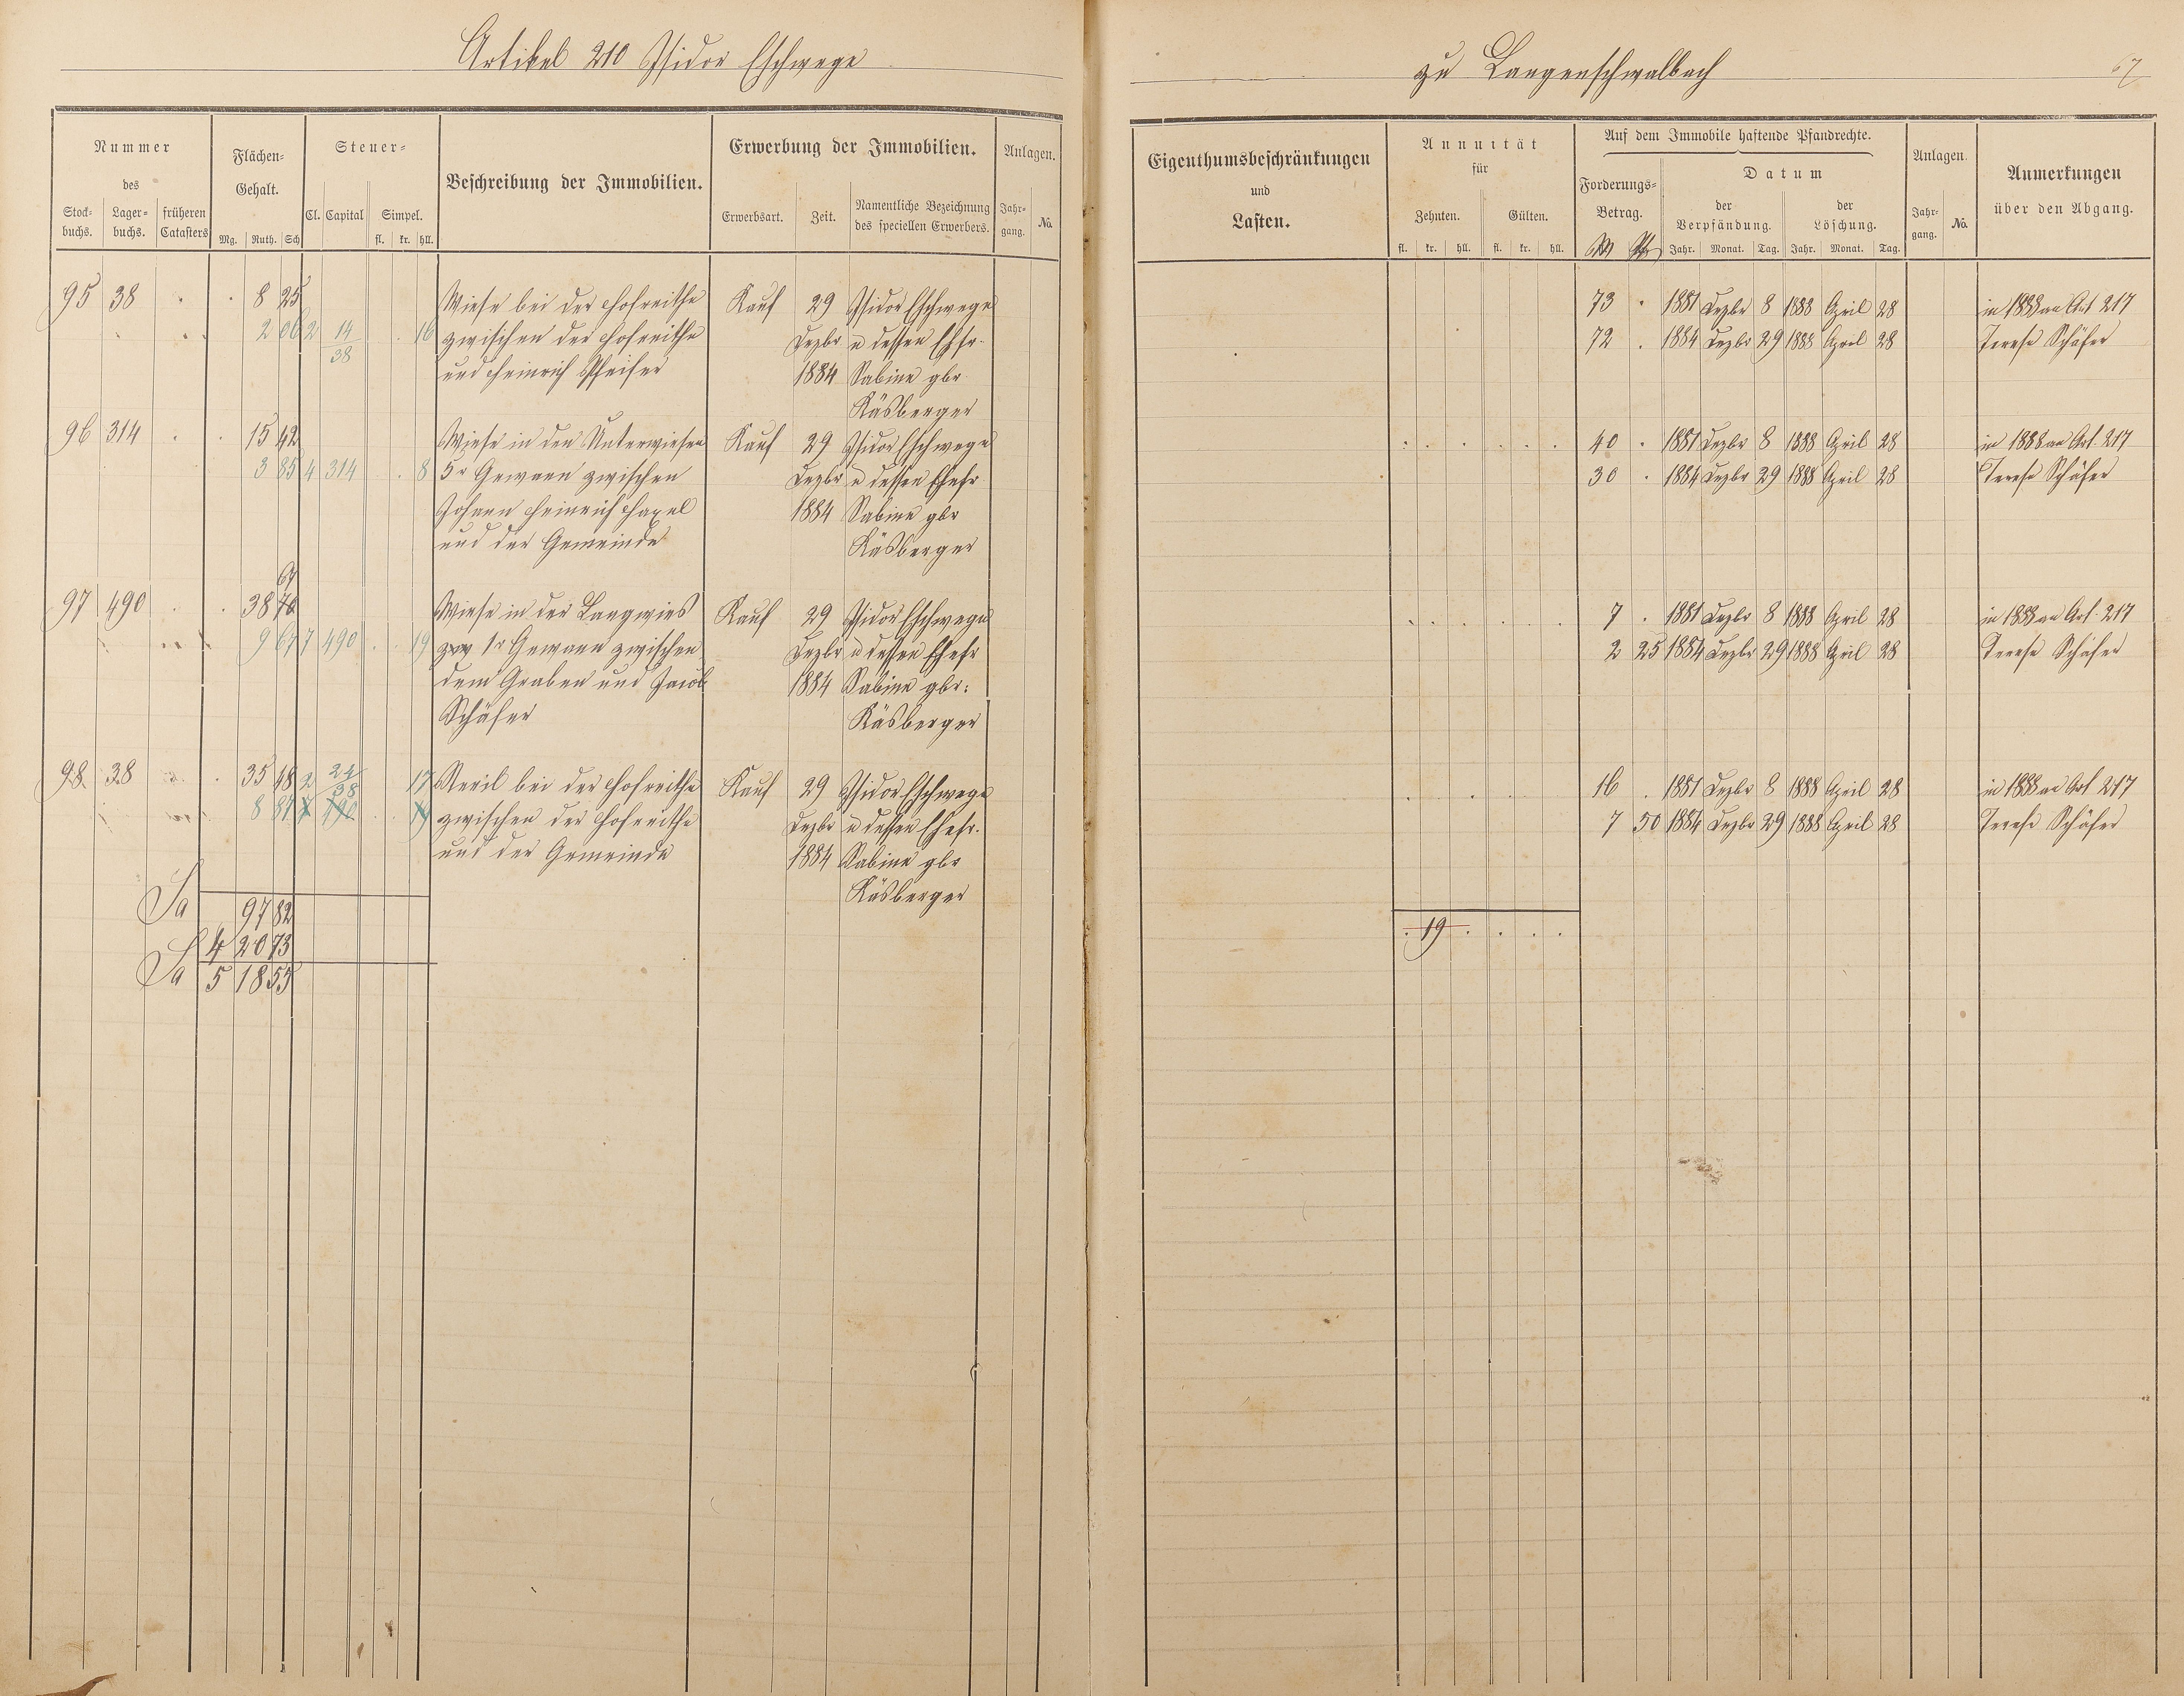 Artikel 210 Isidor Eschwege
Nummer
des
Stock-buchs.
Lager-buchs.
früheren Catasters
Flächen-
Gehalt.
Mg. Ruth. Sch
Steuer-
Cl. Capital Simpel.
fl. kr. hll.
Beschreibung der Immobilien.
Erwerbung der Immobilien.
Erwerbsart. Zeit. Namentliche Bezeichnung
des speciellen Erwerbers.
Anlagen.
Jahr-gang. No.
95 38 . . 8 25 Wiese bei der Hofreithe Kauf 29 Isidor Eschwege
2 06 2 14/38 . 16 zwischen der Hofreithe Dezbr u dessen Ehfr.
und Heinrich Pfeifer 1884 Sabine gbr.
Käsberger
96 314 . . 15 42 Wiese in den Unterwiesen Kauf 29 Isidor Eschwege
3 85 4 314 . 8 5r Gewann zwischen Dezbr u dessen Ehefr
Johann Heinrich Hazel 1884 Sabine gbr
und der Gemeinde Käsberger
69
97 490 . . 38 70 Wiese in der Langwies Kauf 29 Isidor Eschwege
9 67 7 490 . . 19 1r Gewann zwischen Dezbr u dessen Ehefr
dem Graben und Jacob 1884 Sabine gbr:
Schäfer Käsberger
98 38 . 35 48 2 24/38 17 bei der Hofreithe Kauf 29 Isidor Eschwege
8 87 7 490 . 19 zwischen der Hofreithe Dezbr u dessen Ehefr.
und der Gemeinde 1884 Sabine gbr
Käsberger
Sa 97 82
4 20 73
Sa 5 18 55
zu Langenschwalbach
67
Eigenthumsbeschränkungen
und
Lasten.
Annuität
für
Zehnten. Gülten.
fl. kr. hll. fl. kr. hll.
Auf dem Immobile haftende Pfandrechte.
Forderungs-
Betrag.
M Pf
Datum
der Verpfändung. der Löschung.
Jahr. Monat. Tag. Jahr. Monat. Tag.
Anlagen.
Jahr-gang. No.
Anmerkungen
über den Abgang.
73 . 1881 Dezbr 8 1888 April 28 in 1888 an Art 217
72 . 1884 Dezbr 29 1888 April 28 Terese Schäfer
40 . 1881 Dezbr 8 1888 April 28 in 1888 an Art. 217
30 . 1884 Dezbr 29 1888 April 28 Terese Schäfer
7 . 1881 Dezbr 8 1888 April 28 in 1888 an Art. 217
2 25 1884 Dezbr 29 1888 April 28 Terese Schäfer
16 . 1881 Dezbr 8 1888 April 28 in 1888 an Art 217
7 50 1884 Dezbr 29 1888 April 28 Terese Schäfer
. 19 . . . .